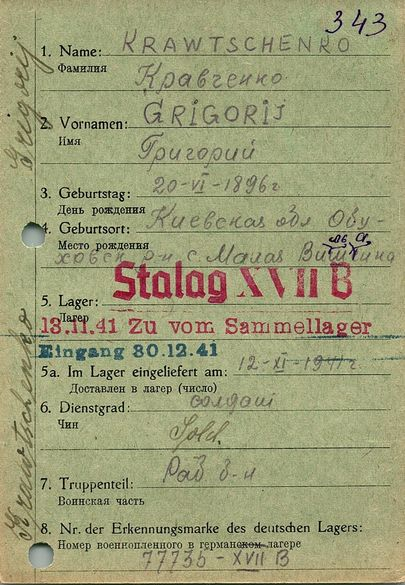 343
1. Name: KRAWTSCHENKO
Фамилия
Кравченко
2. Vornamen: GRIGORIJ
Имя
Григорий
3. Geburtstag: 20-VI-1896г
День рождения
4. Geburtsort: Киевская обл Обу-
Место рождения
ховск р-н с. Малая
Stalag XVII B
5. Lager:
Лагерь
13.11.41 Zu vom Sammellager
Eingang 30.12.41
5a. Im Lager eingeliefert am: 12-XI-1941г.
Доставлен в лагерь (число)
6. Dienstgrad: солдат
Чин
Sold.
7. Truppenteil: Раб б-н
Воинская часть
8. Nr. der Erkennungsmarke des deutschen Lagers:
Номер военнопленного в германском лагере
77735 - XVII B
Krawtschenko Grigorij